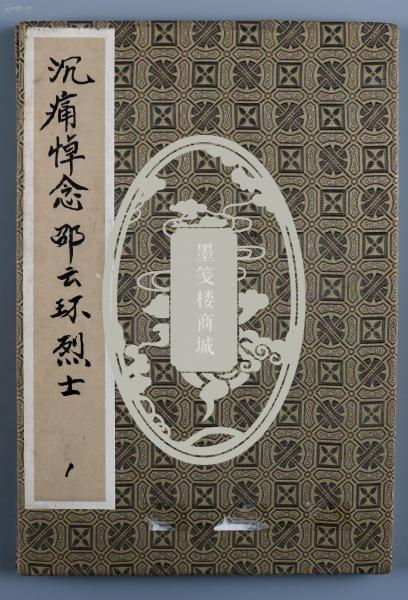 沉痛悼念邵云环烈士
1
墨笺楼商城